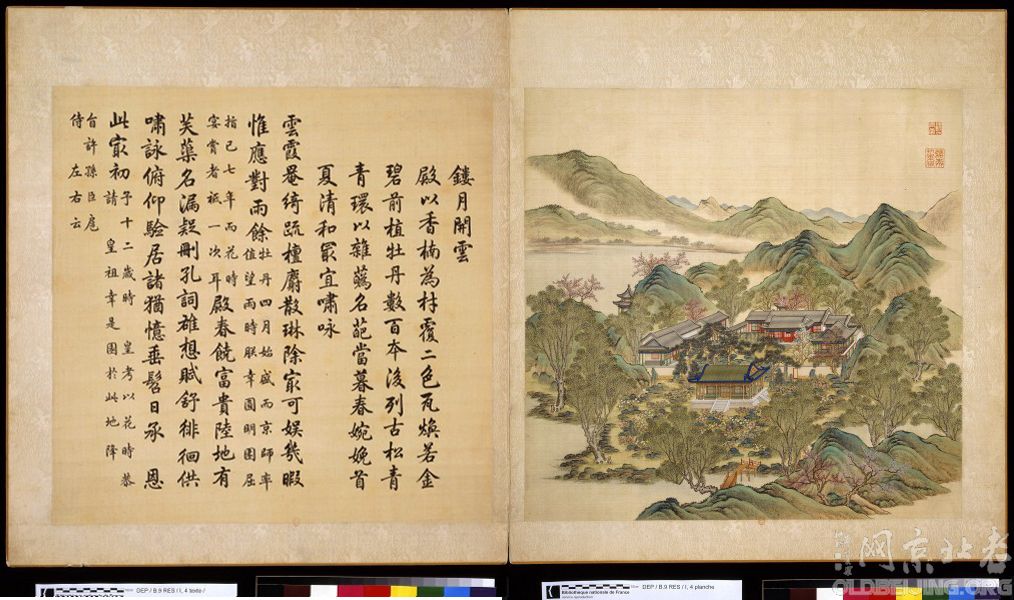 鏤月開雲
殿以香楠為材覆二色瓦煥若金
碧前植牡丹數百本後列古松青
青環以雜蘤名葩當暮春婉娩首
夏清和最宜嘯咏
雲霞罨綺疏檀麝散琳除最可娛幾暇
惟應對雨餘牡丹四月始盛而京師率
值望雨時朕幸圓明園屈
指已七年而花時
宴賞者祇一次耳殿春饒富貴陸地有
芙蕖名漏疑刪孔詞雄想賦舒徘徊供
嘯詠俯仰驗居諸猶憶垂髫日承 恩
此最初予十二歲時 皇考以花時恭
請 皇祖幸是園於此地降
旨許孫臣扈
侍左右云
DEP / B.9 RES / I, 4 texte /
DEP / B.9 RES / I, 4 planche
Bibliothèque nationale de France
老北京网
OLDBEIJING.ORG